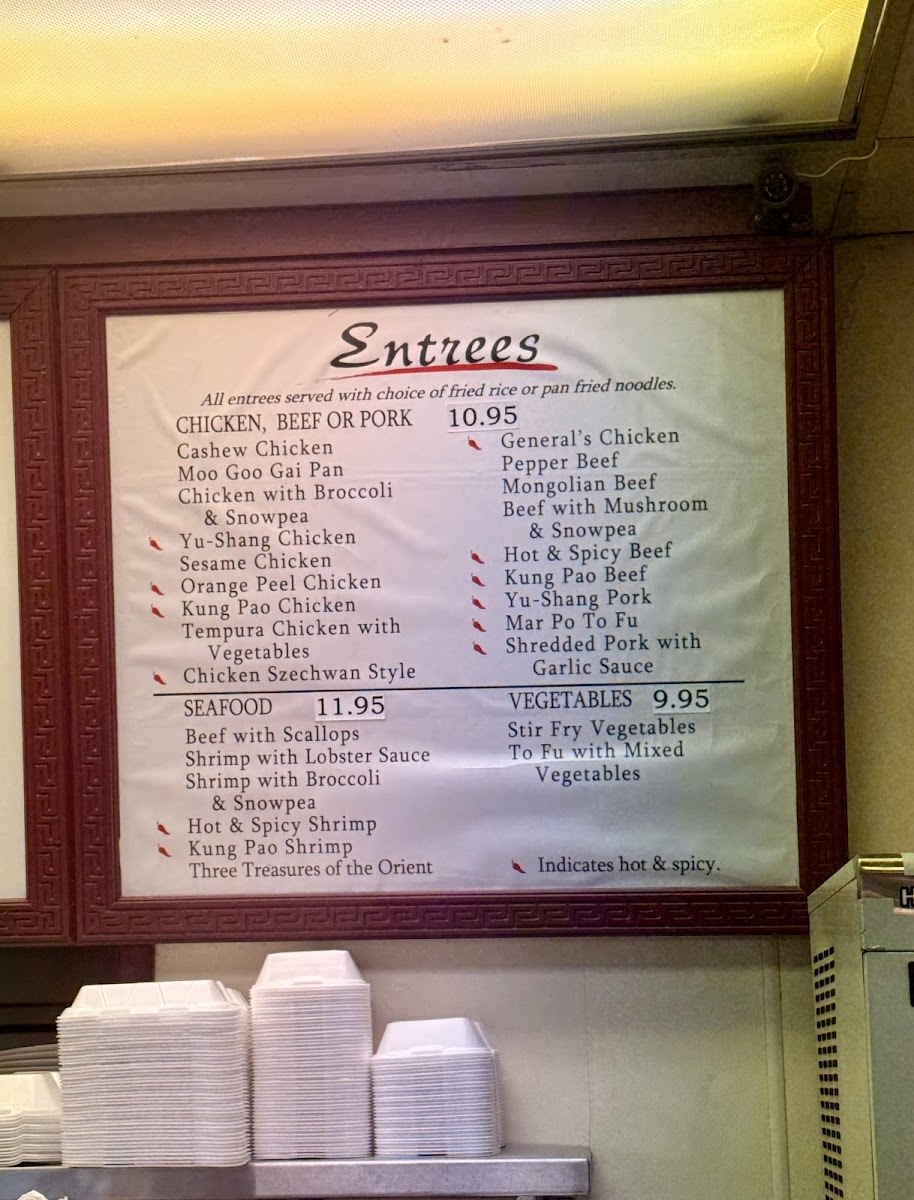 Entrees
All entrees served with choice of fried rice or pan fried noodles.
CHICKEN, BEEF OR PORK 10.95
Cashew Chicken
Moo Goo Gai Pan
Chicken with Broccoli
& Snowpea
Yu-Shang Chicken
Sesame Chicken
Orange Peel Chicken
Kung Pao Chicken
Tempura Chicken with
Vegetables
Chicken Szechwan Style
General's Chicken
Pepper Beef
Mongolian Beef
Beef with Mushroom
& Snowpea
Hot & Spicy Beef
Kung Pao Beef
Yu-Shang Pork
Mar Po To Fu
Shredded Pork with
Garlic Sauce
SEAFOOD 11.95
Beef with Scallops
Shrimp with Lobster Sauce
Shrimp with Broccoli
& Snowpea
Hot & Spicy Shrimp
Kung Pao Shrimp
Three Treasures of the Orient
VEGETABLES 9.95
Stir Fry Vegetables
To Fu with Mixed
Vegetables
Indicates hot & spicy.